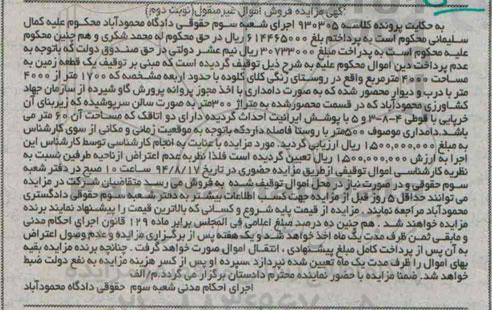 آگهی مزایده فروش اموال غیرمنقول(نوبت دوم)
به حکایت پرونده کلاسه ۹۳۰۳۰۵ اجرای شعبه سوم حقوقی دادگاه محمودآباد محکوم علیه کمال
سلیمانی محکوم است به پرداختم بلغ ۶۱۴۴۶۵۰۰۰ ریال در حق محکوم له محمد شکری و هم چنین محکوم
علیه محکوم است به پدراخت مبلغ ۳۰۷۳۳۰۰۰ ریال نیم عشر دولتی در حق صندوق دولت که باتوجه به
عدم پرداخت دین اموال محکوم علیه به شرح ذیل توقیف گردیده است که مبنی بر توقیف یک قطعه زمین به
مساحت ۴۰۰۰ مترمربع واقع در روستای زنگی کلای کلوده با حدود اربعه مشخصه که ۱۷۰۰ متر از ۴۰۰۰
متر با درب و دیوار محصور شده که به صورت دامداری با اخذ مجوز پروانه پرورش گاو شیرده از سازمان جهاد
کشاورزی محمودآباد که در قسمت محصورشده به متراژ ۳۰۰متر به صورت سالن سرپوشیده که زیربنای آن
خرپایی با قوطی ۴-۸-۳ و ۵ با پوشش ایرانیت احداث گردیده دارای دو اتاقک که مساحت آن ۶۰ متر می
باشد.دامداری موصوف ۵۰۰متر با روستا فاصله داردکه باتوجه به موقعیت زمانی و مکانی از سوی کارشناس
به مبلغ ۱/۵۰۰/۰۰۰/۰۰۰ ریال ارزیابی گردید. مورد مزایده با عنایت به انجام کارشناسی توسط کارشناس این
اجرا به ارزش ۱/۵۰۰/۰۰۰/۰۰۰ ریال تعیین گردیده است فلذا نظربه عدم اعتراض ازناحیه طرفین نسبت به
نظریه کارشناسی اموال توقیفی ازطریق مزایده حضوری در تاریخ ۹۴/۸/۱۷ ساعت ۱۰ صبح در دفتر شعبه
سوم حقوقی و در صورت نیاز در محل اموال توقیف شده به فروش می رسد متقاضیان شرکت در مزایده
می توانند حداقل ۵ روز قبل از مزایده جهت کسب اطلاعات بیشتر به دفتر شعبه سوم حقوقی دادگستری
محمودآباد مراجعه نمایند . مزایده از قیمت پایه شروع و کسانی که بالاترین قیمت را پیشنهاد نمایند برنده
مزایده خواهند شد . هم چنین ده درصد مبلغ اعلامی فی المجلس برابر ماده ۱۲۹ قانون اجرای احکام مدنی
و مابقی ثمن ظرف مدت یک ماه اخذ خواهد شدو یک هفته پس از برگزاری مزایده و عدم وصول اعتراض
به آن پس از پرداخت کامل مبلغ پیشنهادی ، انتقال اموال صورت خواهد گرفت . چنانچه برنده مزایده بقیه
بهای اموال را ظرف مدت یک ماه تعیین شده نپردازد ،سپرده او پس از کسر هزینه مزایده به نفع دولت ضبط
خواهد شد. ضمنا مزایده با حضور نماینده محترم دادستان برگزار می گردد.م/الف
اجرای احکام مدنی شعبه سوم حقوقی دادگاه محمودآباد